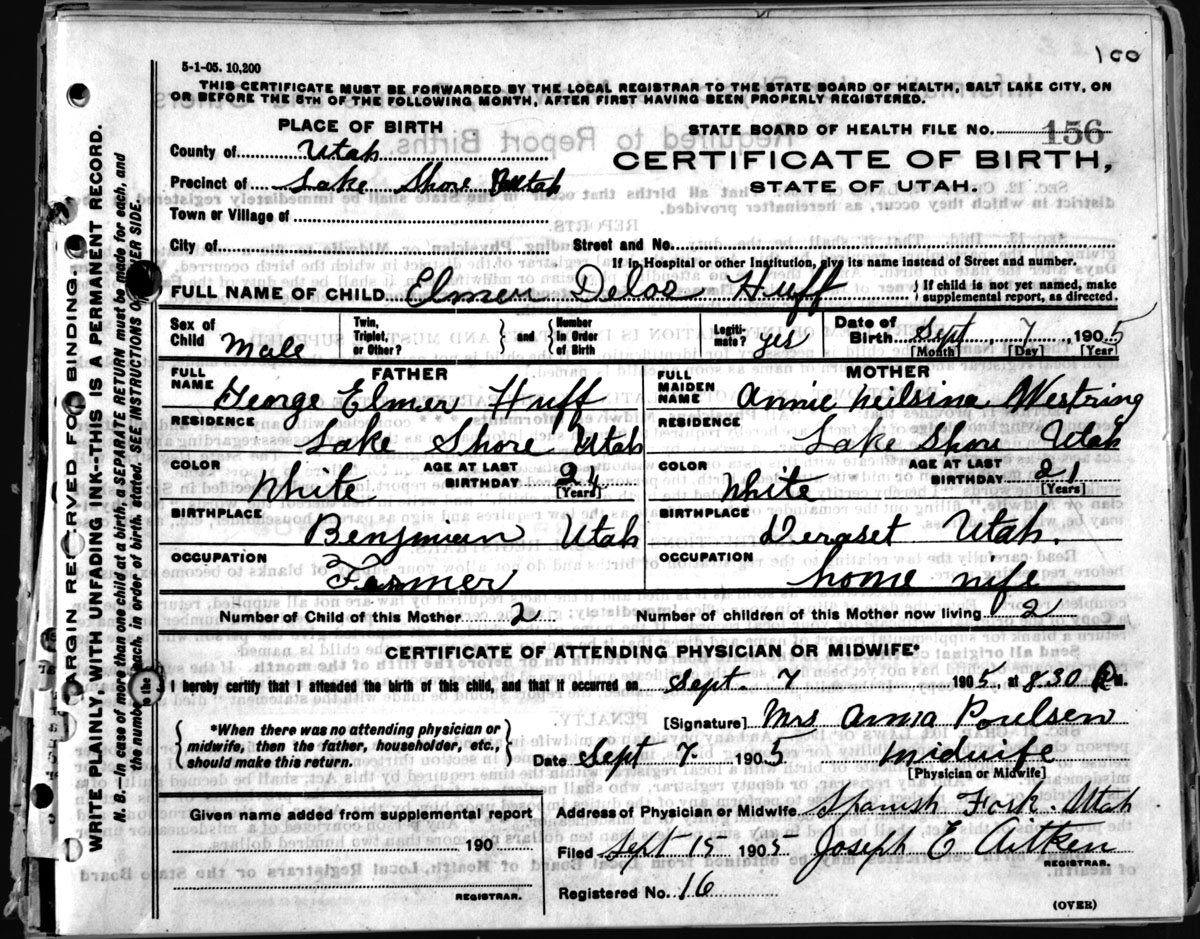 100
5-1-05. 10,200
THIS CERTIFICATE MUST BE FORWARDED BY THE LOCAL REGISTRAR TO THE STATE BOARD OF HEALTH, SALT LAKE CITY, ON
OR BEFORE THE 5TH OF THE FOLLOWING MONTH, AFTER FIRST HAVING BEEN PROPERLY REGISTERED.
PLACE OF BIRTH
STATE BOARD OF HEALTH FILE NO. 156
County of Utah
CERTIFICATE OF BIRTH,
Precinct of Lake Shore Utah
STATE OF UTAH.
Town or Village of
City of Street and No.
If in Hospital or other Institution, give its name instead of Street and number.
FULL NAME OF CHILD Elmer Delos Huff { If child is not yet named, make
supplemental report, as directed.
Sex of Child Male
Twin, Triplet, or Other? } and { Number in Order of Birth
Legiti-mate? yes
Date of Birth Sept 7, 1905
[Month] [Day] [Year]
FATHER
FULL NAME George Elmer Huff
RESIDENCE Lake Shore Utah
COLOR White AGE AT LAST BIRTHDAY 24
[Years]
BIRTHPLACE Benjmian Utah
OCCUPATION Farmer
MOTHER
FULL MAIDEN NAME Annie Neilsina Westring
RESIDENCE Lake Shore Utah
COLOR White AGE AT LAST BIRTHDAY 21
[Years]
BIRTHPLACE Deraset Utah.
OCCUPATION home wife
Number of Child of this Mother 2 Number of children of this Mother now living 2
CERTIFICATE OF ATTENDING PHYSICIAN OR MIDWIFE*
I hereby certify that I attended the birth of this child, and that it occurred on Sept. 7 1905, at 830 P.m.
*When there was no attending physician or
midwife, then the father, householder, etc.,
should make this return.
[Signature] Mrs Anna Poulsen
Date Sept 7. 1905 midwife
[Physician or Midwife]
Given name added from supplemental report
190
REGISTRAR.
Address of Physician or Midwife Spanish Fork. Utah
Filed Sept 15 1905 Joseph E Aitken
REGISTRAR.
Registered No. 16
(OVER)
MARGIN RESERVED FOR BINDING.
WRITE PLAINLY, WITH UNFADING INK--THIS IS A PERMANENT RECORD.
N. B.--In case of more than one child at a birth, a SEPARATE RETURN must be made for each, and
the number of each, in order of birth, stated. SEE INSTRUCTIONS ON OTHER SIDE.